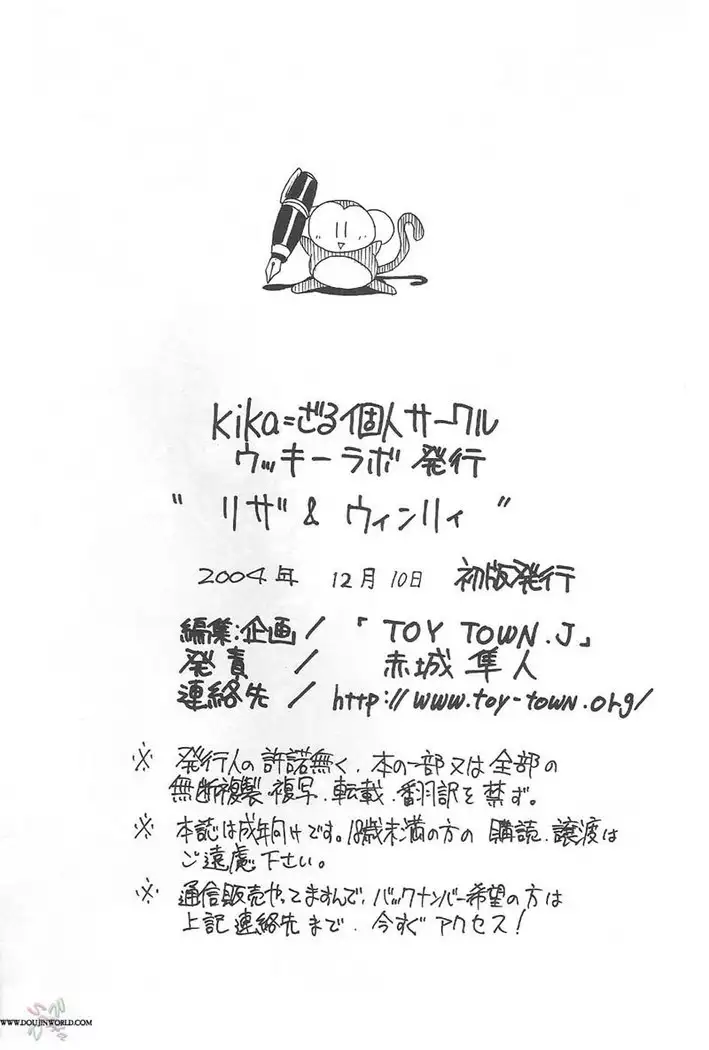 kika=ざる個人サークル
ウッキーラボ 発行
"リザ & ウィンリィ"
2004年 12月10日 初版発行
編集:企画/「TOY TOWN.J」
発責/赤城 隼人
連絡先/http://www.toy-town.org/
※ 発行人の許諾無く、本の一部又は全部の
無断複製・複写、転載、翻訳を禁ず。
※ 本誌は成年向けです。18歳未満の方の購読、譲渡は
ご遠慮下さい。
※ 通信販売やってますんで、バックナンバー希望の方は
上記連絡先まで、今すぐアクセス!
WWW.DOUJINWORLD.COM